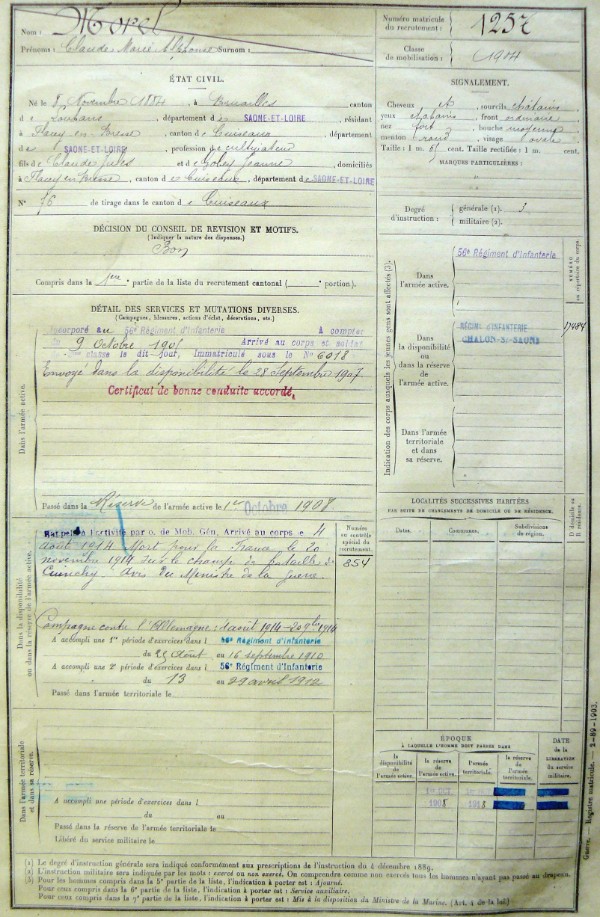 Nom : Morel
Prénoms : Claude Marie Alphonse Surnom :
Numéro matricule du recrutement : 1257
Classe de mobilisation : 1904
ÉTAT CIVIL.
Né le 8 Novembre 1884, à Bruailles, canton
de Louhans, département de SAONE-ET-LOIRE, résidant
à Flacey en Bresse, canton de Cuiseaux, département
de SAONE-ET-LOIRE, profession de cultivateur
fils de Claude Jules et de Jeanne, domiciliés
à Flacey en Bresse, canton de Cuiseaux, département de SAONE-ET-LOIRE
N° 76 de tirage dans le canton de Cuiseaux
SIGNALEMENT.
Cheveux et sourcils châtains
yeux châtains, front ordinaire
nez fort, bouche moyenne
menton rond, visage ovale
Taille : 1 m. cent. Taille rectifiée : 1 m. cent.
MARQUES PARTICULIÈRES :
Degré d'instruction :
générale (1). 3
militaire (2).
DÉCISION DU CONSEIL DE REVISION ET MOTIFS.
(Indiquer la nature des dispenses.)
Bon
Compris dans la 1re partie de la liste du recrutement cantonal ( portion).
DÉTAIL DES SERVICES ET MUTATIONS DIVERSES.
(Campagnes, blessures, actions d'éclat, décorations, etc.)
Incorporé au 56e Régiment d'Infanterie à compter
du 9 Octobre 1905 Arrivé au corps et soldat
2me classe le dit jour, Immatriculé sous le N° 6018
Envoyé dans la disponibilité le 28 Septembre 1907
Certificat de bonne conduite accordé,
Dans l'armée active.
Passé dans la Réserve de l'armée active le 1er Octobre 1908
Indication des corps auxquels les jeunes gens sont affectés (3).
Dans l'armée active.
56e Régiment d'Infanterie
NUMÉRO au répertoire du corps.
Dans la disponibilité ou dans la réserve de l'armée active.
RÉGIMT D'INFANTERIE
CHALON-S-SAONE
Dans l'armée territoriale et dans sa réserve.
Dans la disponibilité ou dans la réserve de l'armée active.
Rappelé à l'activité par o. de Mob. Gén. Arrivé au corps le 4
août 1914 Mort pour la France le 20
novembre 1914 sur le champ de bataille de
Avis du Ministre de la Guerre.
Numéro au contrôle spécial du recrutement.
854
Campagne contre l'Allemagne : 4 août 1914 - 20 9bre 1914
A accompli une 1re période d'exercices dans l 56e Régiment d'Infanterie
du 25 août au 16 septembre 1910
A accompli une 2e période d'exercices dans l 56e Régiment d'Infanterie
du 13 au 29 avril 1912
Passé dans l'armée territoriale le
LOCALITÉS SUCCESSIVES HABITÉES
PAR SUITE DE CHANGEMENTS DE DOMICILE OU DE RÉSIDENCE.
Dates. Communes. Subdivisions de région. D domicile ou R résidence
Dans l'armée territoriale et dans sa réserve.
A accompli une période d'exercices dans l
du au
Passé dans la réserve de l'armée territoriale le
Libéré du service militaire le
ÉPOQUE
À LAQUELLE L'HOMME DOIT PASSER DANS
la disponibilité de l'armée active. la réserve de l'armée active. l'armée territoriale. la réserve de l'armée territoriale.
DATE de la LIBÉRATION du service militaire.
1er OCT
1908 1918
Guerre. — Registre matricule. —
(1) Le degré d'instruction générale sera indiqué conformément aux prescriptions de l'instruction du 4 décembre 1889.
(2) L'instruction militaire sera indiquée par les mots : exercé ou non exercé. On comprendra comme non exercés tous les hommes n'ayant pas passé au drapeau.
(3) Pour les hommes compris dans la 5e partie de la liste, l'indication à porter est : Ajourné.
Pour ceux compris dans la 6e partie de la liste, l'indication à porter est : Service auxiliaire.
Pour ceux compris dans la 7e partie de la liste, l'indication à porter est : Mis à la disposition du Ministre de la Marine. (Art. 4 de la loi.)